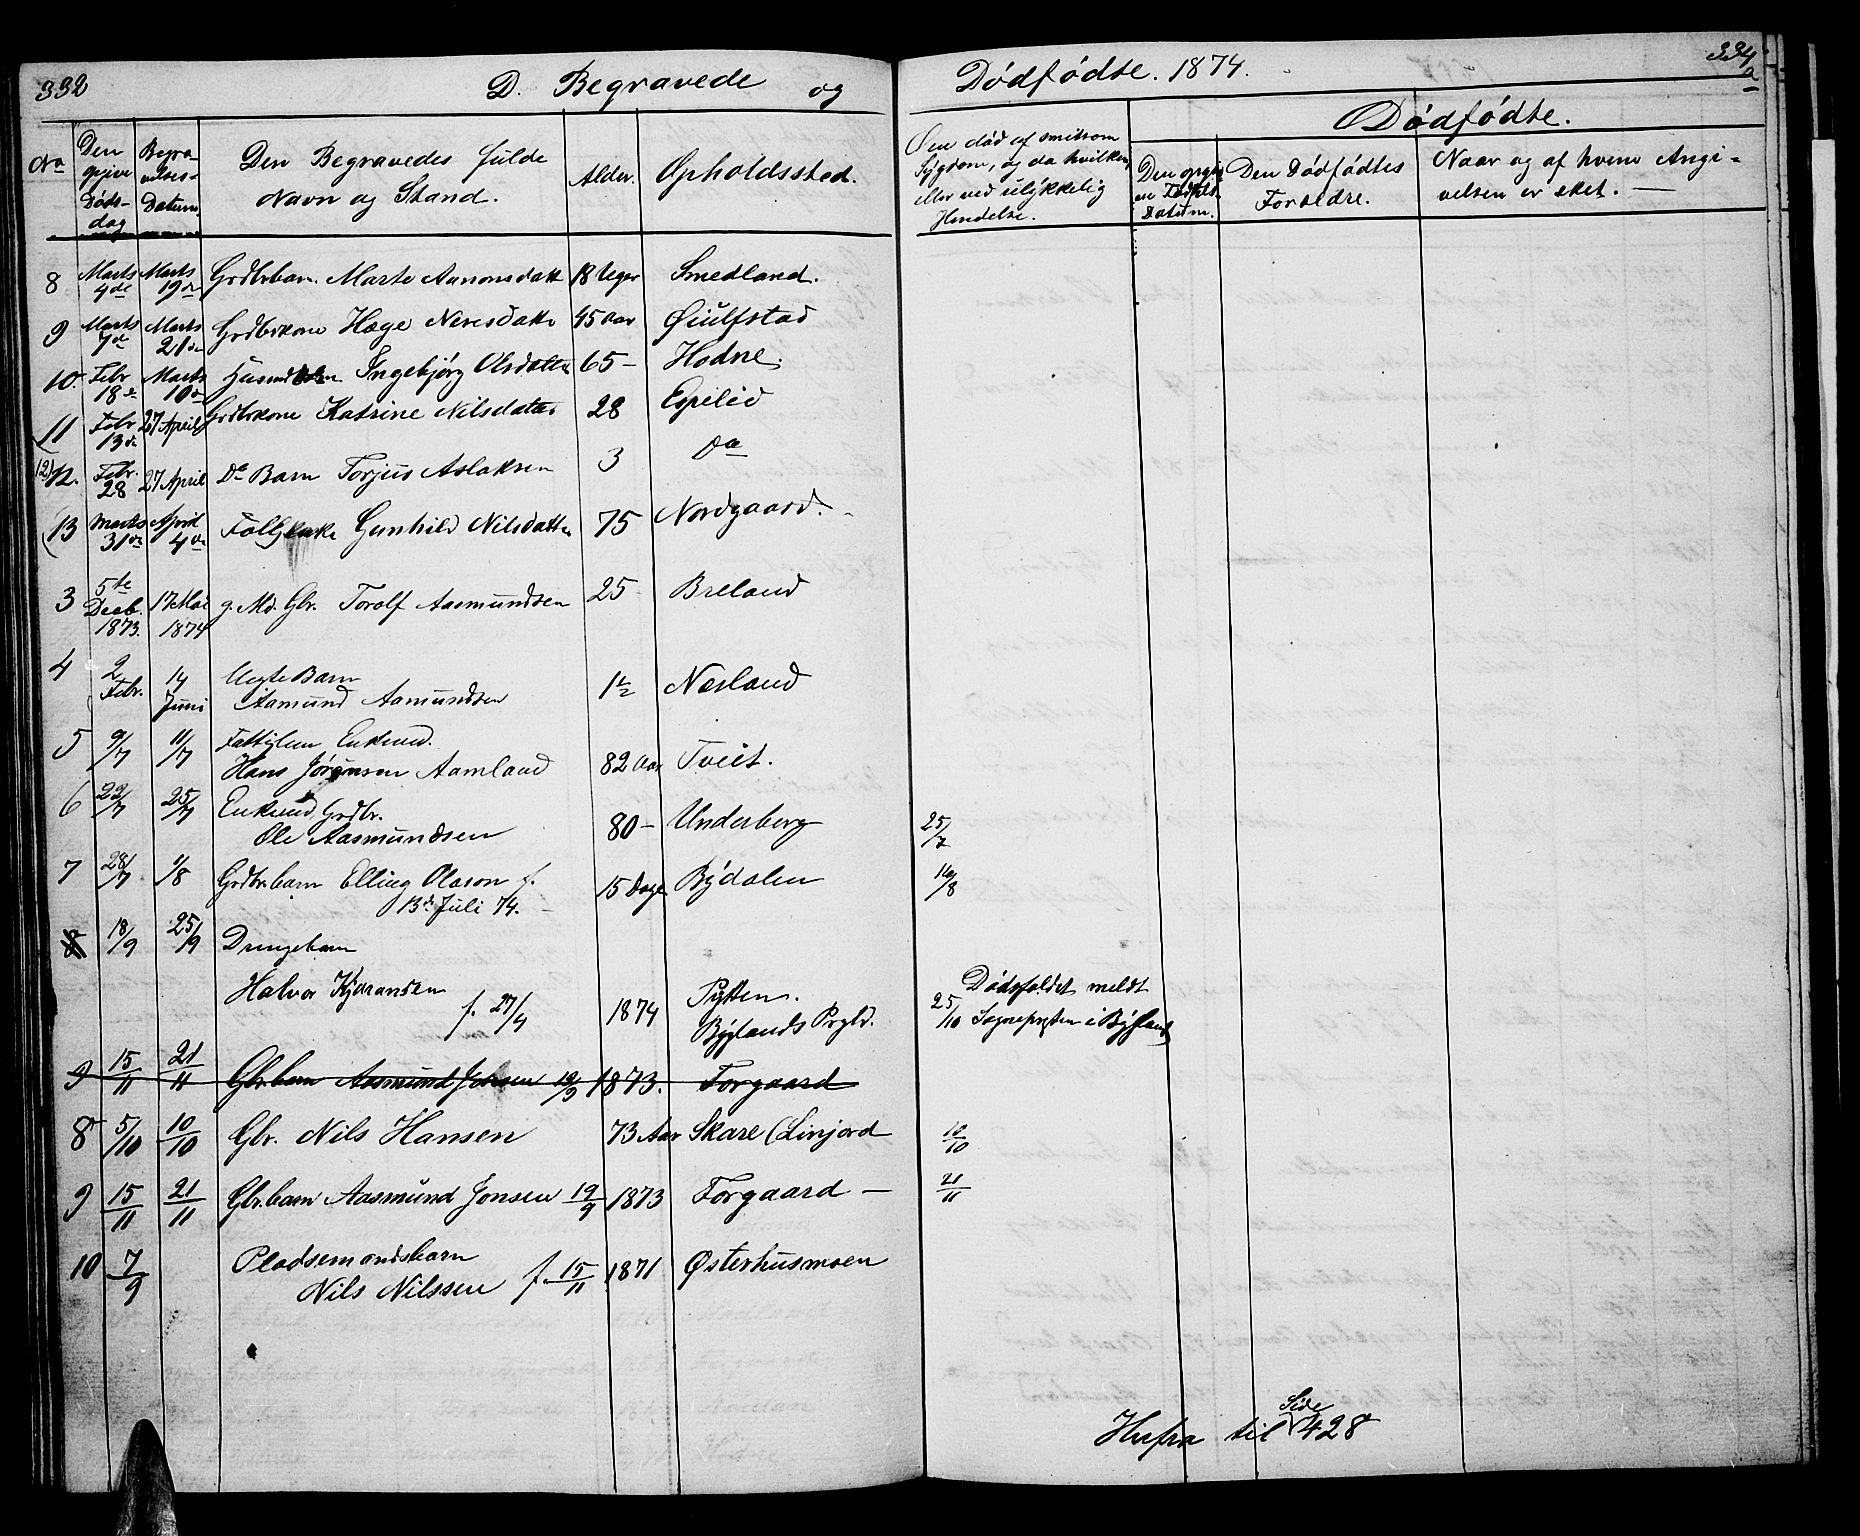 332
D. Begravede og
Dødfødte. 1874.
334
a
No
Den
Døds-
dag
Begra-
velses-
Datum
Den Begravedes fulde
Navn og Stand.
Alder.
Opholdssted.
Om død af smitsom
Sygdom, og da hvilken,
eller ved ulykkelig
Hendelse.
Dødfødte.
Datum.
Den Dødfødtes
Forældre.
Naar og af hvem Angi-
velsen er sket. —
8 Marts 4de Marts 19de Grdbrbarn. Marte Aanonsdatt 18 Uger Smedland.
9 Marts 7de Marts 21de Grdbrkone Hæge 45 Aar Øiulfstad
10. Febr 18de Marts 10de Ingebjørg Olsdatter 65 — Hodne.
11 Febr 13de 27 April Grdbrkone Katrine Nilsdatter 28 Espelid
12. Febr. 28 27 April Do Barn Torjus Aslaksen 3 Do
13 Marts 31de April 4de Gunhild Nilsdatter 75 Nordgaard.
3 5te Decb. 1873. 17 Mai 1874 g. Md. Gbr. Torolf Aasmundsen 25 Breland
4 2 Febr. 14 Juni Uægte Barn
Aamund Aamundsen 1½ Næsland
5 9/7 11/7 Fattiglem Enkemd.
Hans Jørgensen Aamland 82 Aar Tveit.
6 22/7 25/7 Enkemd Grdbr.
Ole Aasmundsen 80 — Underberg 25/7
7 28/7 1/8 Grdbr.barn Elling Olason f.
13de Juli 74. — 15 Dage Bydalen 16/8
8 18/9 25/9 Drengebarn
Halvor Kjøransen
f. 27/4 1874 Pytten.
Byglands Prgld. 25/10 Dødsfaldet meldt
Sognepresten i Bygland
9 15/11 21/11 Gbr.barn Aasmund Jonsen 19/9 1873. Forgaard
8 5/10 10/10 Gbr. Nils Hansen 73 Aar Skare (Linjord 10/10
9 15/11 21/11 Gbr.barn Aasmund Jonsen 19/9 1873 Forgaard — 21/11
10 7/9 Pladsemandsbarn
Nils Nilssen f. 15/11 1871 Østerhusmoen
Herfra til Side 428